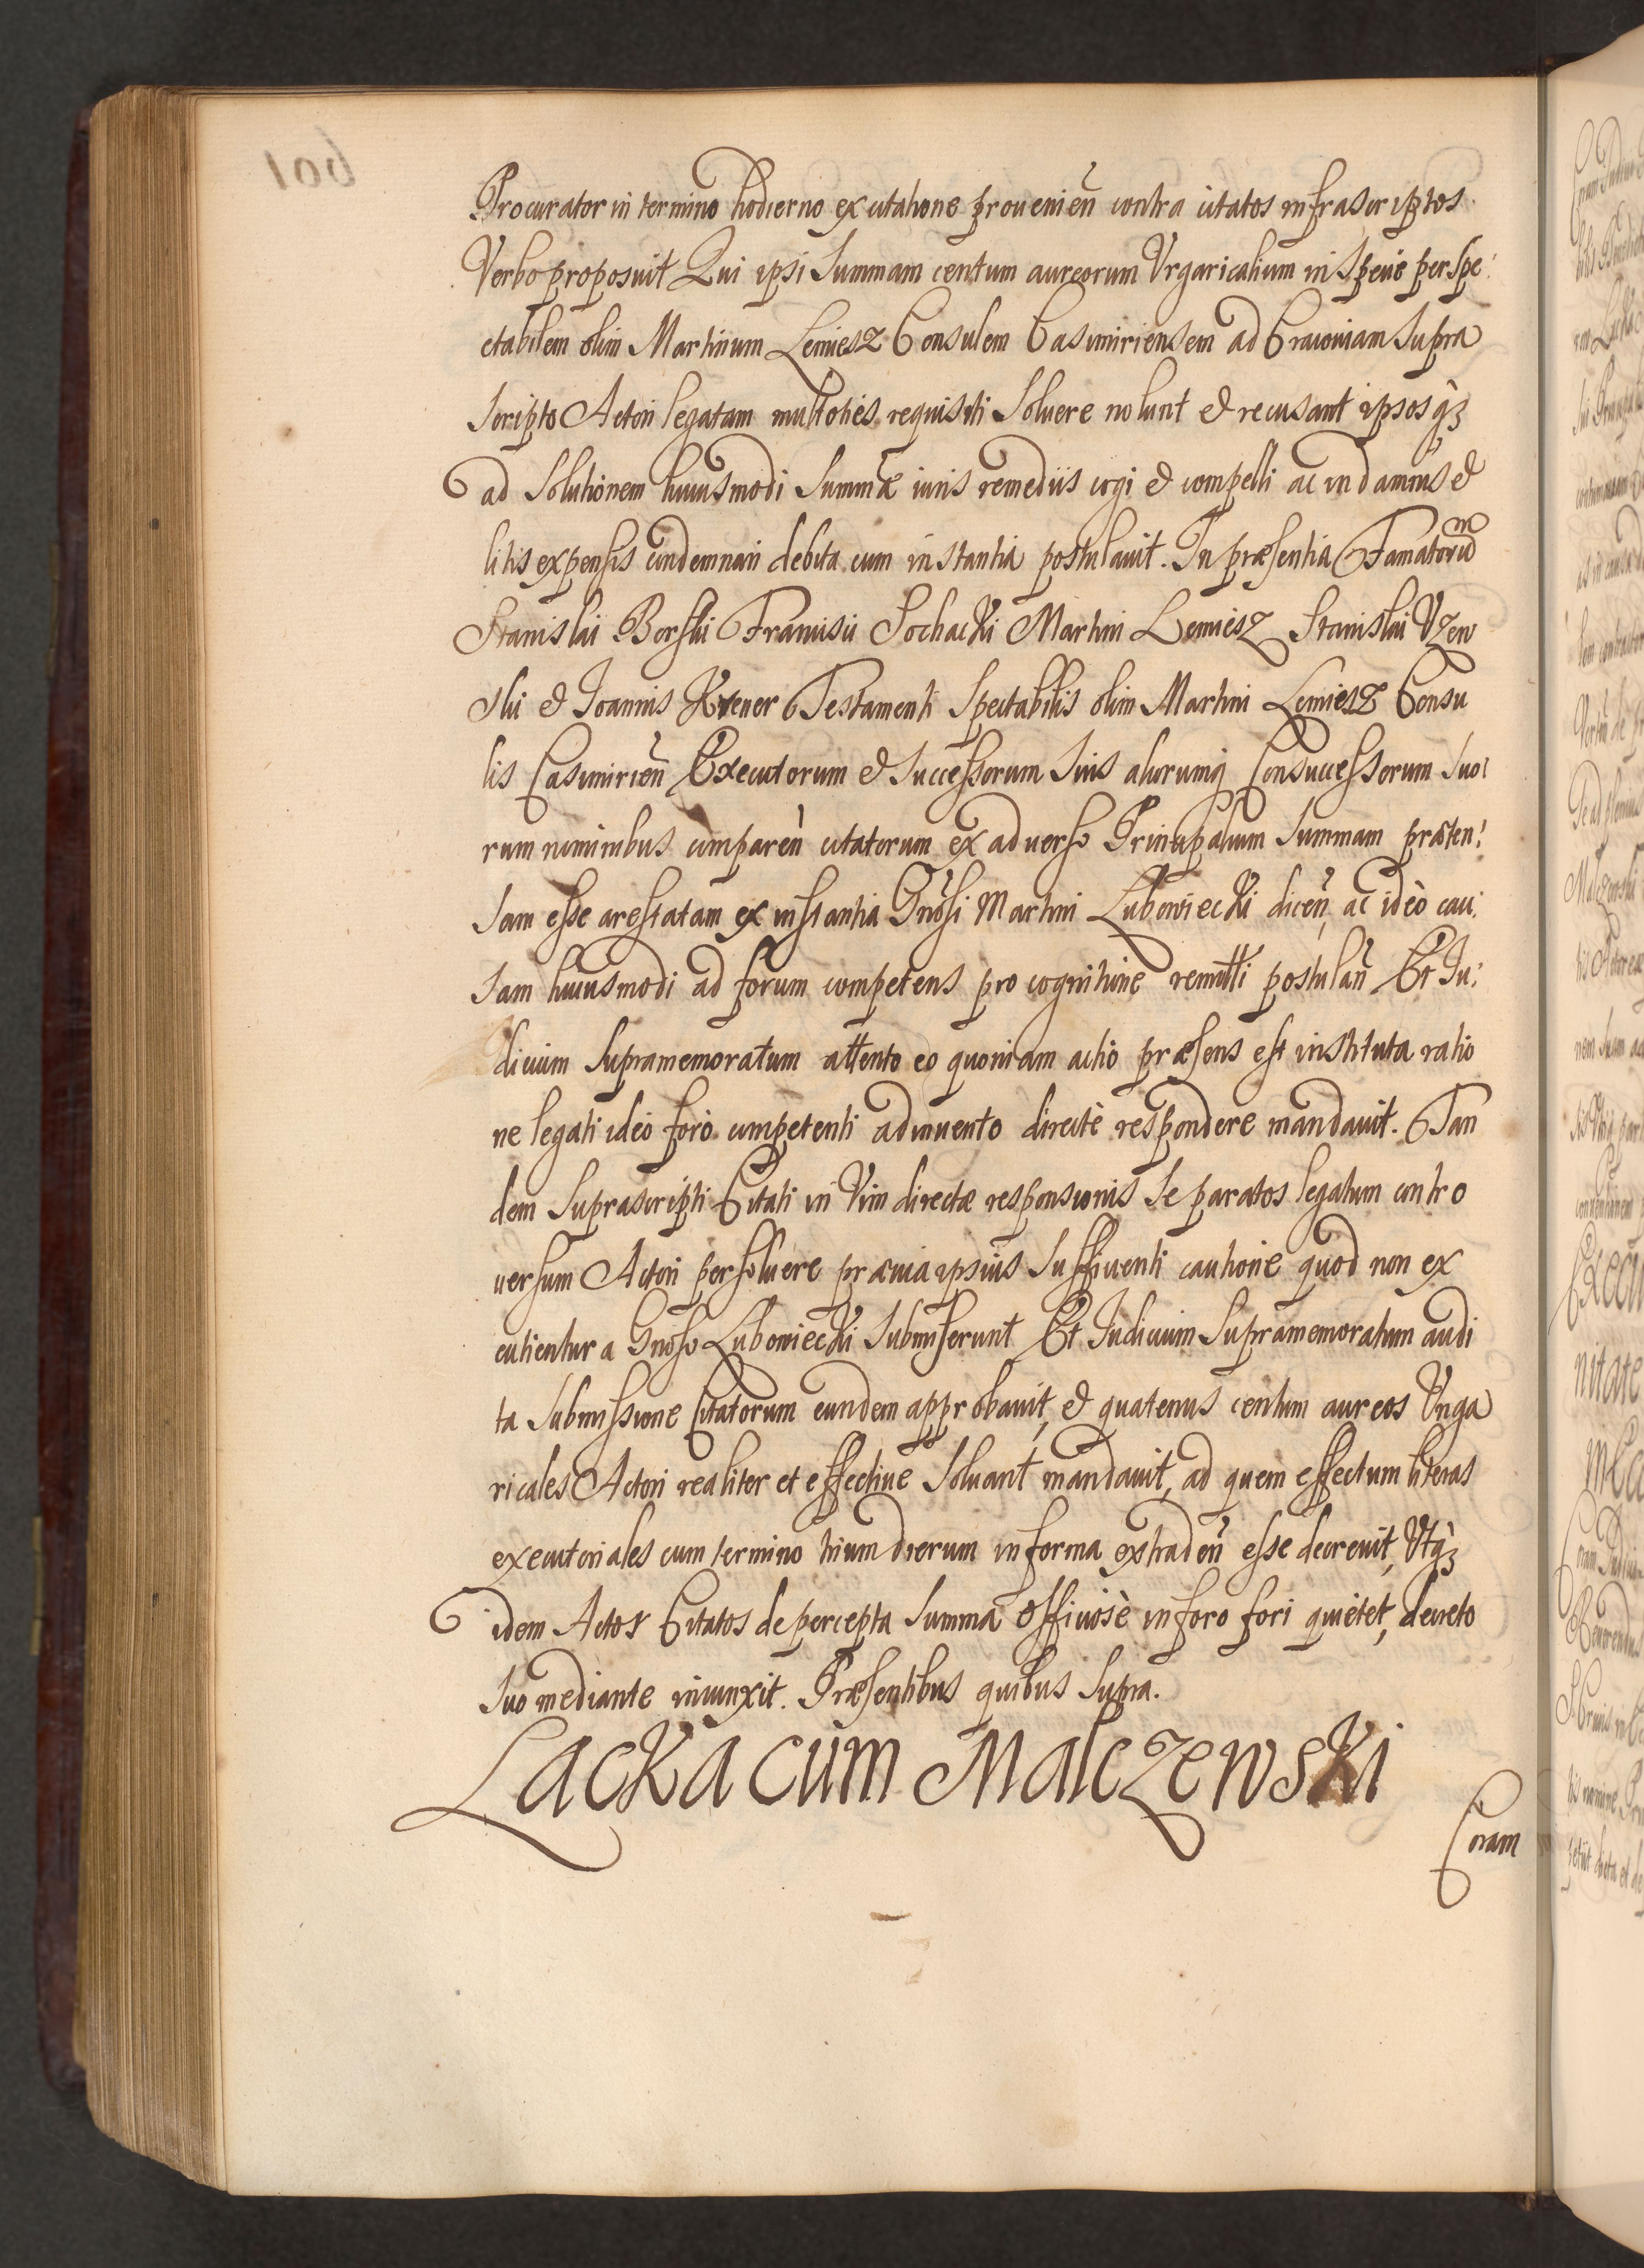 Procurator in termino hodierno ex citatione prouenień contra citatos infrascriptos
Verbo proposuit Qui ipsi Summam centum aureorum Vngaricalium in Specie per Spe
ctabilem olim Martinum Lemiesz Consulem Casimiriensem ad Cracoviam Supra
Scripto Actori legatam multoties requisiti Soluere nolunt & recusant ipsosqꝫ
ad Solutionem huiusmodi Summæ iuris remediis cogi & compelli ac in damnis &
litis expensis condemnari debita cum instantia postulauit. In præsentia Famatorum
Stanislai Borski Francisci Sochacki Martini Lemiesz Stanislai Vzen
ski & Ioannis Krener Testamenti Spectabilis olim Martini Lemiesz Consu
lis Casimirień Executorum & Successorum Suis aliorumq Consuccessorum Suo
rum nominibus compareń citatorum ex aduerso Principalium Summam præten
Sam esse arestatam ex instantia Gnosi Martini Lubowiecki diceń, ac ideò cau
Sam huiusmodi ad forum competens pro cognitione remitti postulań Et Iu
dicium Supramemoratum attento eo quoniam actio præsens est instituta ratio
ne legati ideo forò competenti adinuento directè respondere mandauit. Tan
dem Suprascripti Citati in Vim directæ responsionis Se paratos legatum contro
uersum Actori persoluere præuia ipsius Sufficienti cautione quod non ex
cutientur a Gnoso Lubowiecki Submiserunt Et Iudicium Supramemoratum audi
ta Submissione Citatorum eundem approbauit, & quatenus centum aureos Vnga
ricales Actori realiter et effectiue Soluant mandauit, ad quem effectum literas
executoriales cum termino trium dierum in forma extradeń esse decreuit, Vtqꝫ
idem Actor Citatos de percepta Summa officiosè in foro fori quietet, decreto
Suo mediante iniunxit. Præsentibus quibus Supra.
Lacka cum Malczewski
Coram